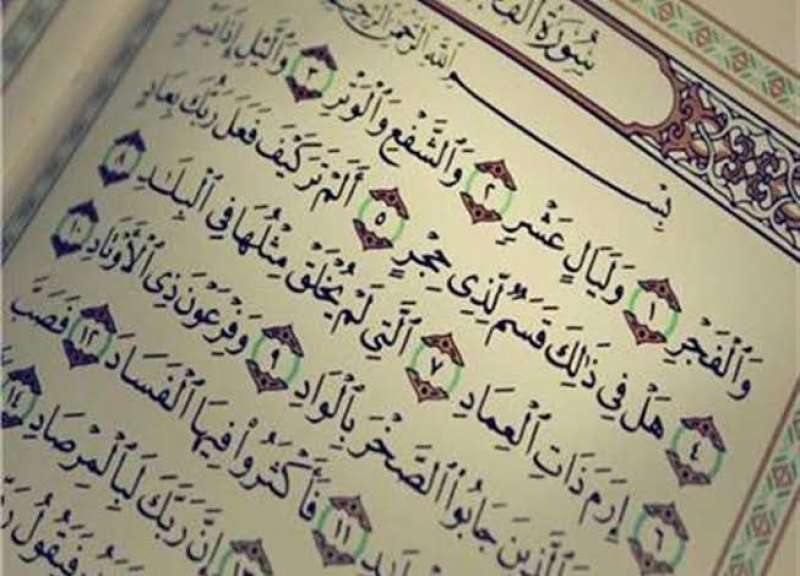 سُورَةُ
بِسْمِ اللَّهِ الرَّحْمَٰنِ الرَّحِيمِ
وَٱلْفَجْرِ ١ وَلَيَالٍ عَشْرٍ ٢ وَٱلشَّفْعِ وَٱلْوَتْرِ ٣ وَٱلَّيْلِ إِذَا يَسْرِ
٤ هَلْ فِى ذَٰلِكَ قَسَمٌ لِّذِى حِجْرٍ ٥ أَلَمْ تَرَ كَيْفَ فَعَلَ رَبُّكَ بِعَادٍ
٦ إِرَمَ ذَاتِ ٱلْعِمَادِ ٧ ٱلَّتِى لَمْ يُخْلَقْ مِثْلُهَا فِى ٱلْبِلَٰدِ ٨
ٱلَّذِينَ جَابُوا۟ ٱلصَّخْرَ بِٱلْوَادِ ٩ وَفِرْعَوْنَ ذِى ٱلْأَوْتَادِ ١٠
١١ فَأَكْثَرُوا۟ فِيهَا ٱلْفَسَادَ ١٢ فَصَبَّ
١٣ إِنَّ رَبَّكَ لَبِٱلْمِرْصَادِ ١٤
فَيَقُولُ